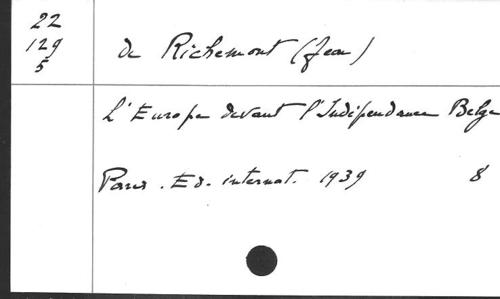 22
129
5
de Richemont (Jean)
L'Europe devant l'Indépendance Belge
Paris. Ed. internat. 1939 8°